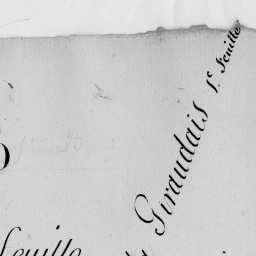 Giraudais 1.e Feuille
Feuille